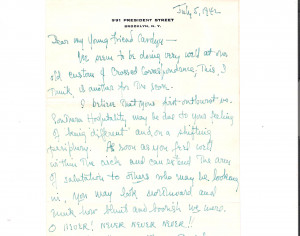 991 PRESIDENT STREET
BROOKLYN, N.Y.
July 5, 1942
Dear my Young Friend Carolyn —
We seem to be doing very well at our
old custom of Crossed Correspondence. This, I
Think is another for the score.
I believe that your first outburst vs.
Southern Hospitality may be due to your feeling
of being different and on a shifting
periphery. As soon as you feel well
within the circle and can extend the arm
of salutation to others who may be looking
in, you may look northward and
think how blunt and boorish we were.
O WORK! NEVER NEVER NEVER!!